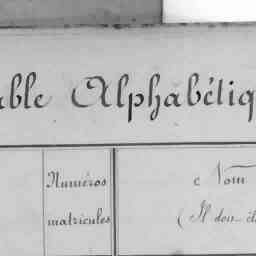 able Alphabétiq
Numéros
matricules
Nom
(Il doit êt